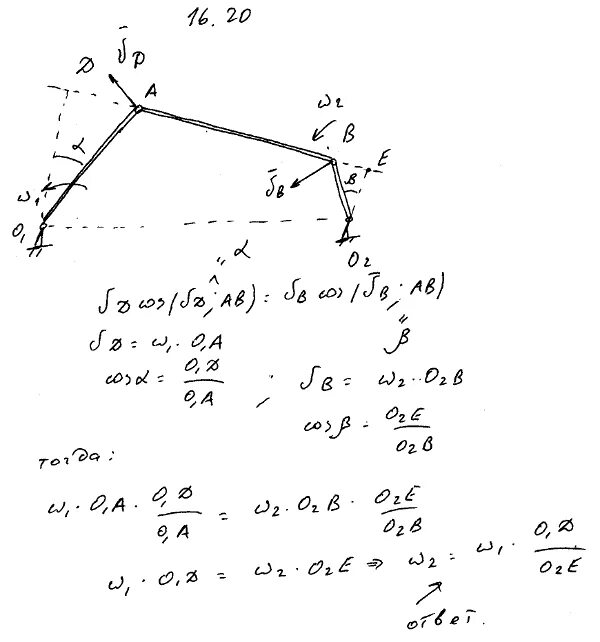 16.20
D
v̄D
A
ω2
B
α
E
β
v̄B
ω1
O1
O2
" α
vD cos(v̄D ; AB) = vB cos(v̄B ; AB)
"
β
vD = ω1 · O1A
cosα = O1D / O1A ; vB = ω2 · O2B
cosβ = O2E / O2B
тогда:
ω1 · O1A · O1D / O1A = ω2 · O2B · O2E / O2B
ω1 · O1D = ω2 · O2E ⇒ ω2 = ω1 · O1D / O2E
ответ.